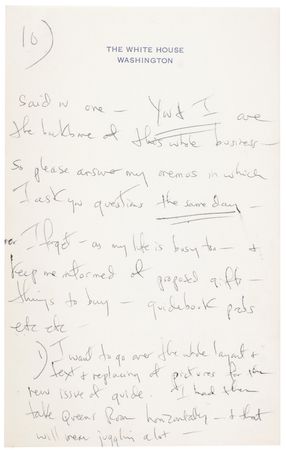 10)
THE WHITE HOUSE
WASHINGTON
said in one — You & I are
the backbone of this whole business —
so please answer my memos in which
I ask you questions the same day —
or I forget — as my life is busy too — &
keep me informed of proposed gifts —
things to buy — guidebook probs
etc etc —
1) I want to go over the whole layout &
text & replacing of pictures for the
new issue of guide. I had them
take Queens Room horizontally — & that
will mean juggling a lot —